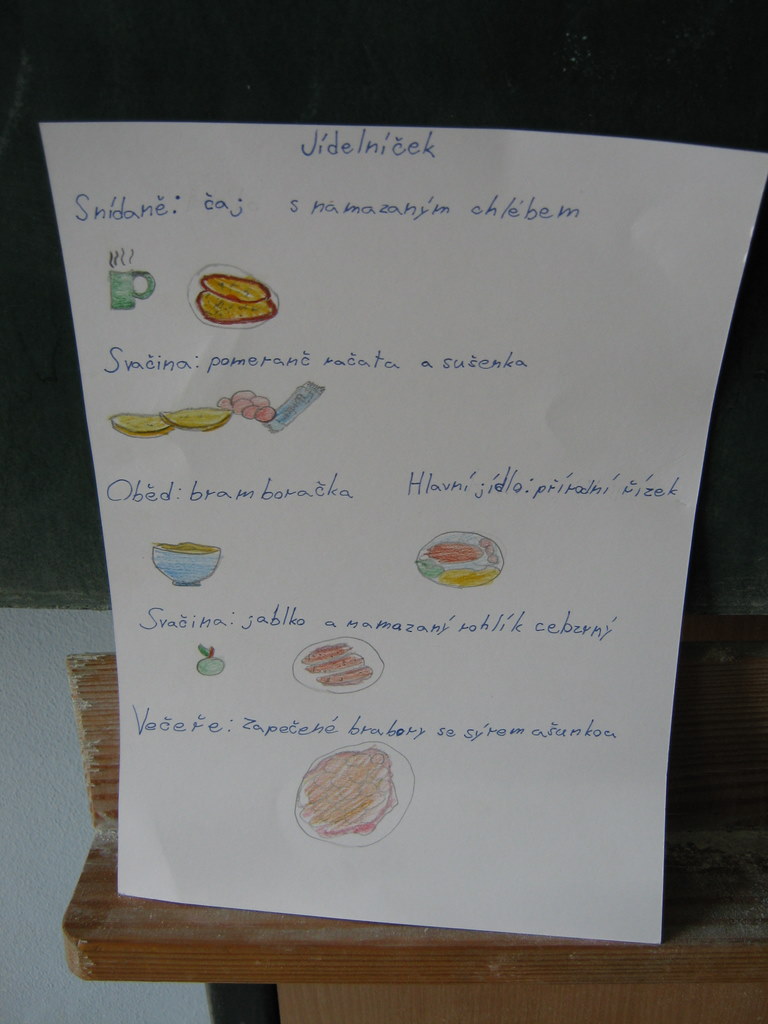 Jídelníček
Snídaně: čaj s namazaným chlébem
Svačina: pomeranč račata a sušenka
Oběd: bramboračka Hlavní jídlo: přírodní řízek
Svačina: jablko a namazaný rohlík
Večeře: Zapečené brabory se sýrem ašunkou